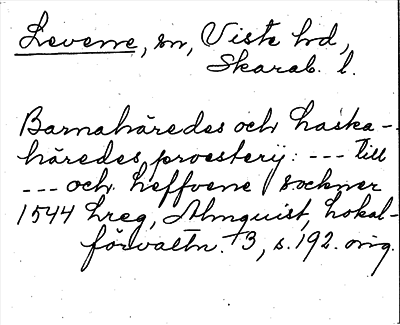 Levene, sn, Viste hrd,
Skarab. l.
Barnahäredes och Laska-
häredes proesterij: --- till
--- och Leffvene sockner
1544 hreg, Almquist, Lokal-
förvaltn. 3, s. 192. orig.